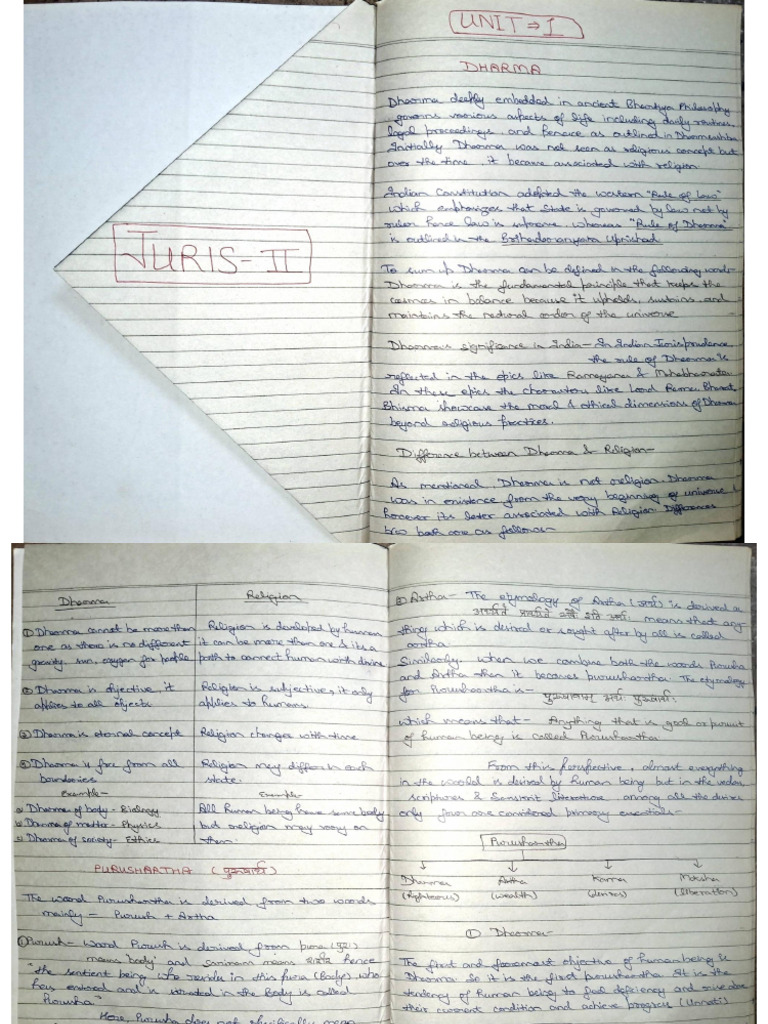 JURIS-II
UNIT ⇒ 1
DHARMA
Dharma deeply embedded in ancient Bhartiya Philosophy
governs various aspects of life including daily routines,
legal proceedings, and penance as outlined in Dharmashastra
Initially Dharma was not seen as religious concept but
over the time, it became associated with religion.
Indian Constitution adopted the western "Rule of Law"
which emphasizes that State is governed by law not by
ruler hence law is supreme, whereas "Rule of Dharma"
is outlined in the Brihadaranyaka Upnishad
To sum up Dharma can be defined in the following words-
Dharma is the fundamental principle that keeps the
cosmos in balance because it upholds, sustains, and
maintains the natural order of the universe
Dharma's significance in India - In Indian Jurisprudence
the rule of Dharma is
reflected in the epics like Ramayana & Mahabharata
In these epics the characters like Lord Rama, Bharat,
Bhisma showcase the moral & ethical dimensions of Dharma
beyond religious practices.
Difference between Dharma & Religion-
As mentioned, Dharma is not religion. Dharma
was in existence from the very beginning of universe
however its later associated with Religion Differences
btw both are as follows-
Dharma
① Dharma cannot be more than
one as there is no different
gravity, sun, oxygen for people
② Dharma is objective, it
applies to all objects
③ Dharma is eternal concept
④ Dharma is free from all
boundaries
Example-
a) Dharma of body - Biology
b) Dharma of matter - Physics
c) Dharma of society - Ethics
Religion
Religion is developed by human
it can be more than one & its a
path to connect human with divine
Religion is subjective, it only
applies to humans.
Religion changes with time
Religion may differ in each
state.
Example
All human being have same body
but religion may vary on
them.
PURUSHARTHA (पुरुषार्थ)
The word Purushartha is derived from two words
mainly - Purush + Artha
① Purush - Word Purush is derived from pura (पुर)
means 'body' and Sariram means शरीर hence
"the sentient being who reside in this pura (Body) who
has entered and is situated in the Body is called
Purusha"
Here, Purusha does not specifically mean
② Artha - The etymology of Artha (अर्थ) is derived as
means that any-
thing which is desired or sought after by all is called
artha
Similarly, when we combine both the words Purusha
and Artha then it becomes purushartha. The etymology
for Purushartha is -
which means that - Anything that is goal or pursuit
of human being is called Purushartha
From this perspective, almost everything
in the world is desired by human being but in the vedas,
scriptures & Sanskrit literature, among all the desires
only four are considered primary essentials-
Purushartha
Dharma
(Righteous)
Artha
(wealth)
Kama
(desires)
Moksha
(liberation)
① Dharma-
The first and foremost objective of human being is
Dharma so it is the first purushartha. It is the
tendency of human being to feel deficiency and rise above
their current condition and achieve progress (Unnati)